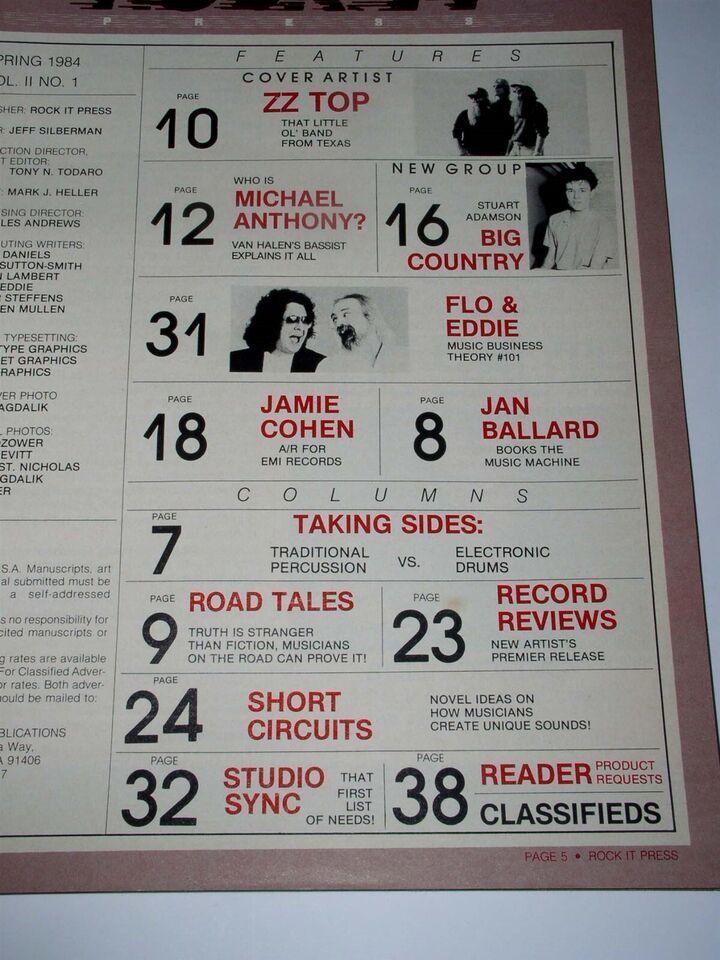 P R E S S
PRING 1984
OL. II NO. 1
SHER: ROCK IT PRESS
R: JEFF SILBERMAN
CTION DIRECTOR,
T EDITOR:
TONY N. TODARO
: MARK J. HELLER
SING DIRECTOR:
LES ANDREWS
UTING WRITERS:
DANIELS
SUTTON-SMITH
N LAMBERT
EDDIE
R STEFFENS
EN MULLEN
TYPESETTING:
TYPE GRAPHICS
ET GRAPHICS
RAPHICS
VER PHOTO
AGDALIK
L PHOTOS:
OZOWER
EVITT
ST. NICHOLAS
GDALIK
ER
S.A. Manuscripts, art
al submitted must be
a self-addressed
s no responsibility for
cited manuscripts or
g rates are available
For Classified Adver-
or rates. Both adver-
hould be mailed to:
BLICATIONS
a Way,
A 91406
7
FEATURES
COVER ARTIST
PAGE
10
ZZ TOP
THAT LITTLE
OL' BAND
FROM TEXAS
PAGE
12
WHO IS
MICHAEL
ANTHONY?
VAN HALEN'S BASSIST
EXPLAINS IT ALL
NEW GROUP
PAGE
16
STUART
ADAMSON
BIG
COUNTRY
PAGE
31
FLO &
EDDIE
MUSIC BUSINESS
THEORY #101
PAGE
18
JAMIE
COHEN
A/R FOR
EMI RECORDS
PAGE
8
JAN
BALLARD
BOOKS THE
MUSIC MACHINE
COLUMNS
PAGE
7
TAKING SIDES:
TRADITIONAL
PERCUSSION
VS.
ELECTRONIC
DRUMS
PAGE
9
ROAD TALES
TRUTH IS STRANGER
THAN FICTION, MUSICIANS
ON THE ROAD CAN PROVE IT!
PAGE
23
RECORD
REVIEWS
NEW ARTIST'S
PREMIER RELEASE
PAGE
24
SHORT
CIRCUITS
NOVEL IDEAS ON
HOW MUSICIANS
CREATE UNIQUE SOUNDS!
PAGE
32
STUDIO
SYNC
THAT
FIRST
LIST
OF NEEDS!
PAGE
38
READER PRODUCT
REQUESTS
CLASSIFIEDS
PAGE 5 • ROCK IT PRESS